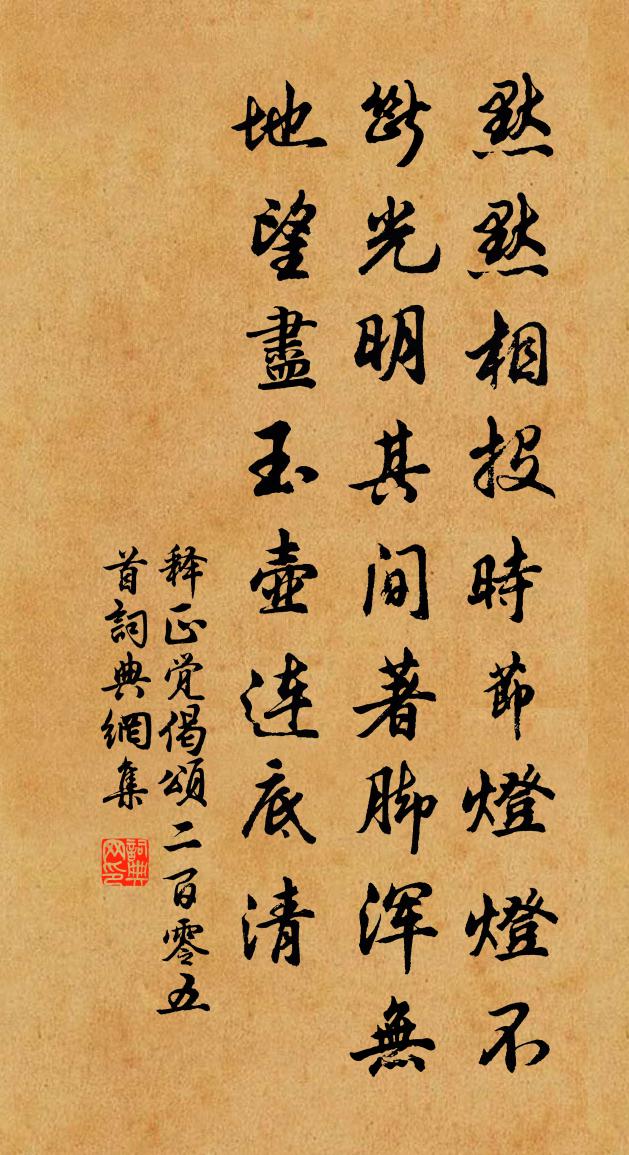 默默相投時節燈燈不
斷光明其間著脚浑無
地望盡玉壺连底清
释正觉偈頌二百零五
首詞典網集
詞典網印